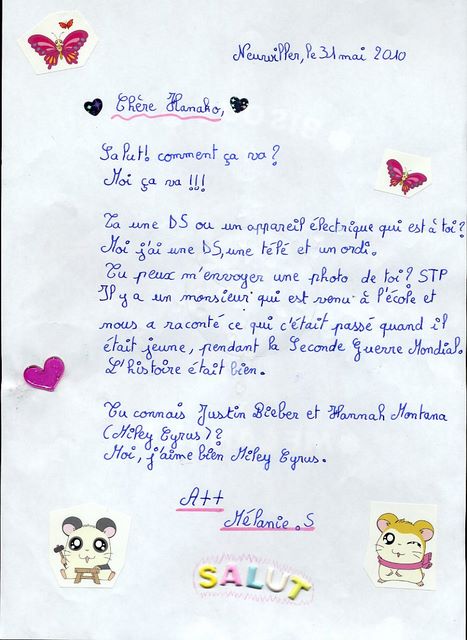 Neuwiller, le 31 mai 2010
Chère Hanako,
Salut! comment ça va?
Moi ça va !!!
Ta une DS ou un appareil électrique qui est à toi?
Moi j'ai une DS, une télé et un ordi.
Tu peux m'envoyer une photo de toi? STP
Il y a un monsieur qui est venu à l'école et
nous a raconté ce qui c'était passé quand il
était jeune, pendant la Seconde Guerre Mondial.
L'histoire était bien.
Tu connais Justin Bieber et Hannah Montana
(Miley Cyrus)?
Moi, j'aime bien Miley Cyrus.
A++
Mélanie.S
SALUT